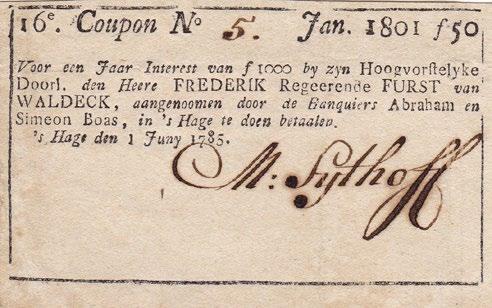 16e. Coupon No 5. Jan. 1801 f50
Voor een Jaar Interest van f 1000 by zyn Hoogvorſtelyke
Doorl. den Heere FREDERIK Regeerende FURST van
WALDECK, aangenoomen door de Banquiers Abraham en
Simeon Boas, in 's Hage te doen betaalen.
's Hage den 1 Juny 1785.
M: Sythoff